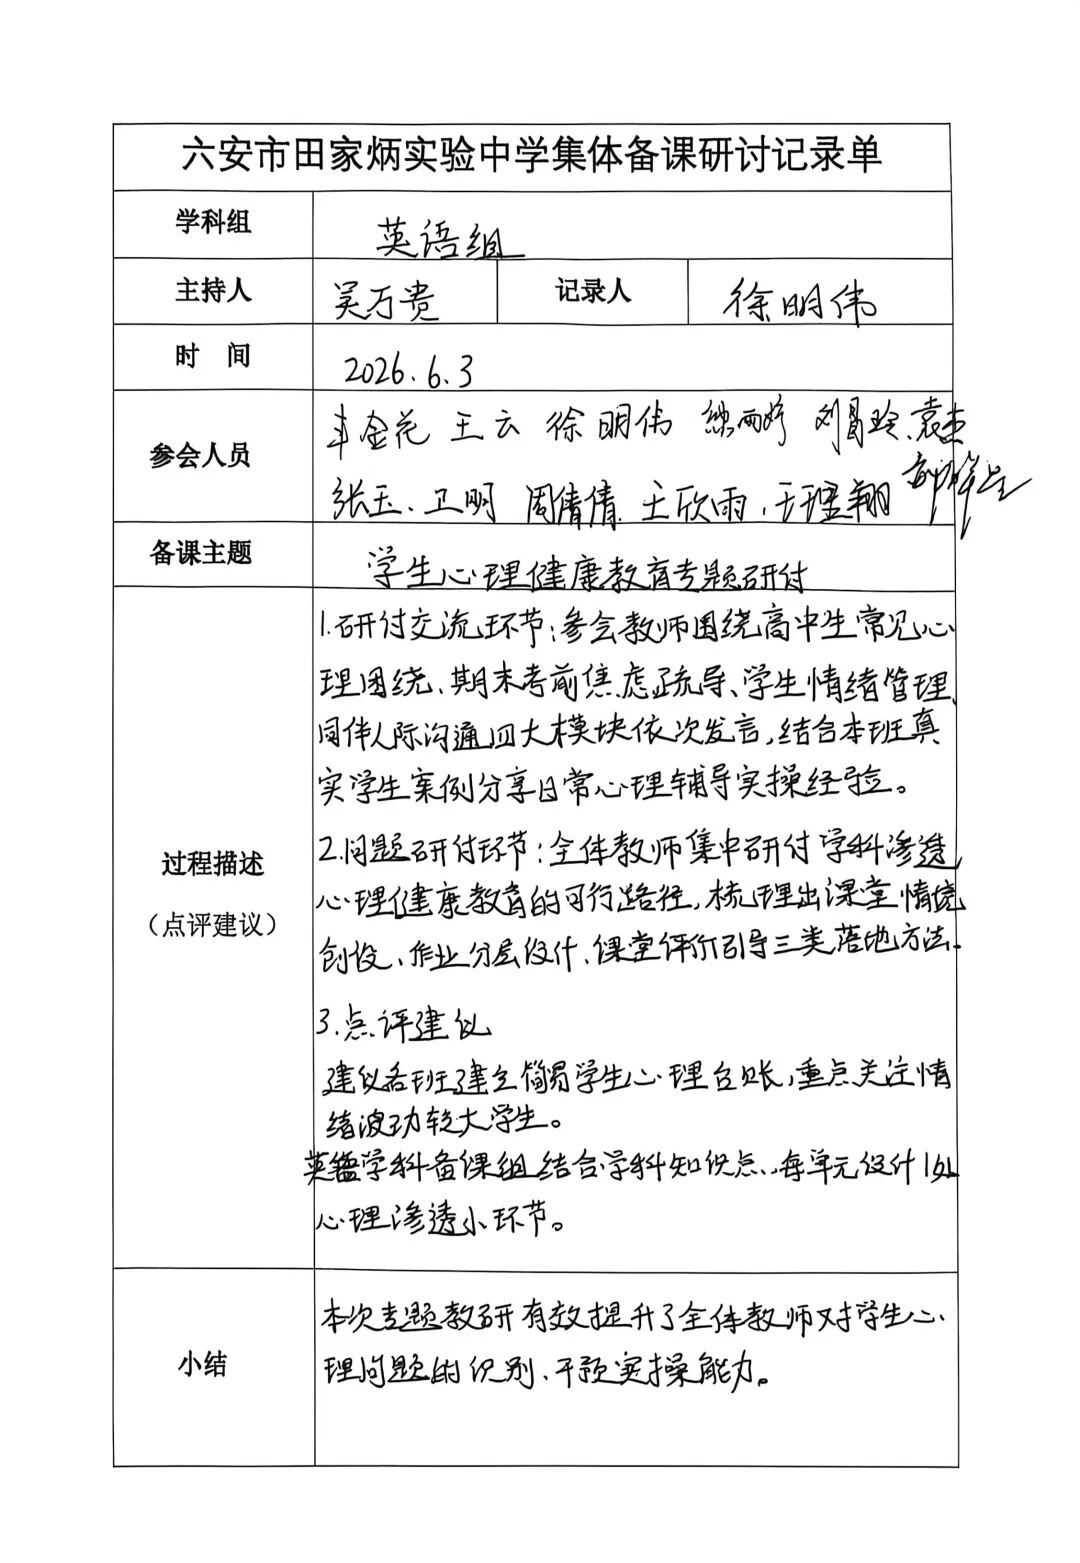 六安市田家炳实验中学集体备课研讨记录单
学科组 英语组
主持人 吴万贵 记录人 徐明伟
时 间 2026.6.3
参会人员
金花 王云 徐明伟 刘昌玲、袁杰
张玉、卫明 周倩倩、王欣雨、翔
备课主题 学生心理健康教育专题研讨
过程描述
(点评建议)
1.研讨交流环节:参会教师围绕高中生常见心
理困绕、期末考前焦虑疏导、学生情绪管理、
同伴人际沟通四大模块依次发言,结合本班真
实学生案例分享日常心理辅导实操经验。
2.问题研讨环节:全体教师集中研讨学科渗透
心理健康教育的可行路径,梳理出课堂情境
创设、作业分层设计、课堂评价引导三类落地方法。
3.点评建议
建议各班建立简易学生心理台账,重点关注情
绪波动较大学生。
英语学科备课组结合学科知识点、每单元设计1处
心理渗透小环节。
小结
本次专题教研有效提升了全体教师对学生心
理问题的识别、干预实操能力。